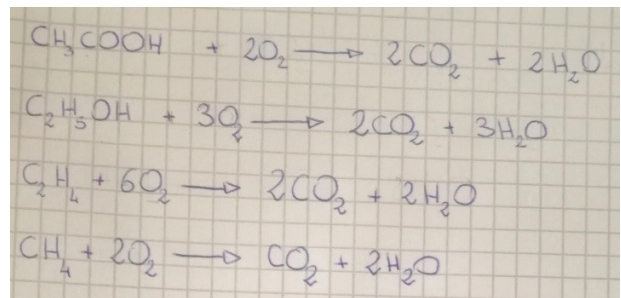 CH₃COOH + 2O₂ → 2CO₂ + 2H₂O
C₂H₅OH + 3O₂ → 2CO₂ + 3H₂O
C₂H₄ + 6O₂ → 2CO₂ + 2H₂O
CH₄ + 2O₂ → CO₂ + 2H₂O